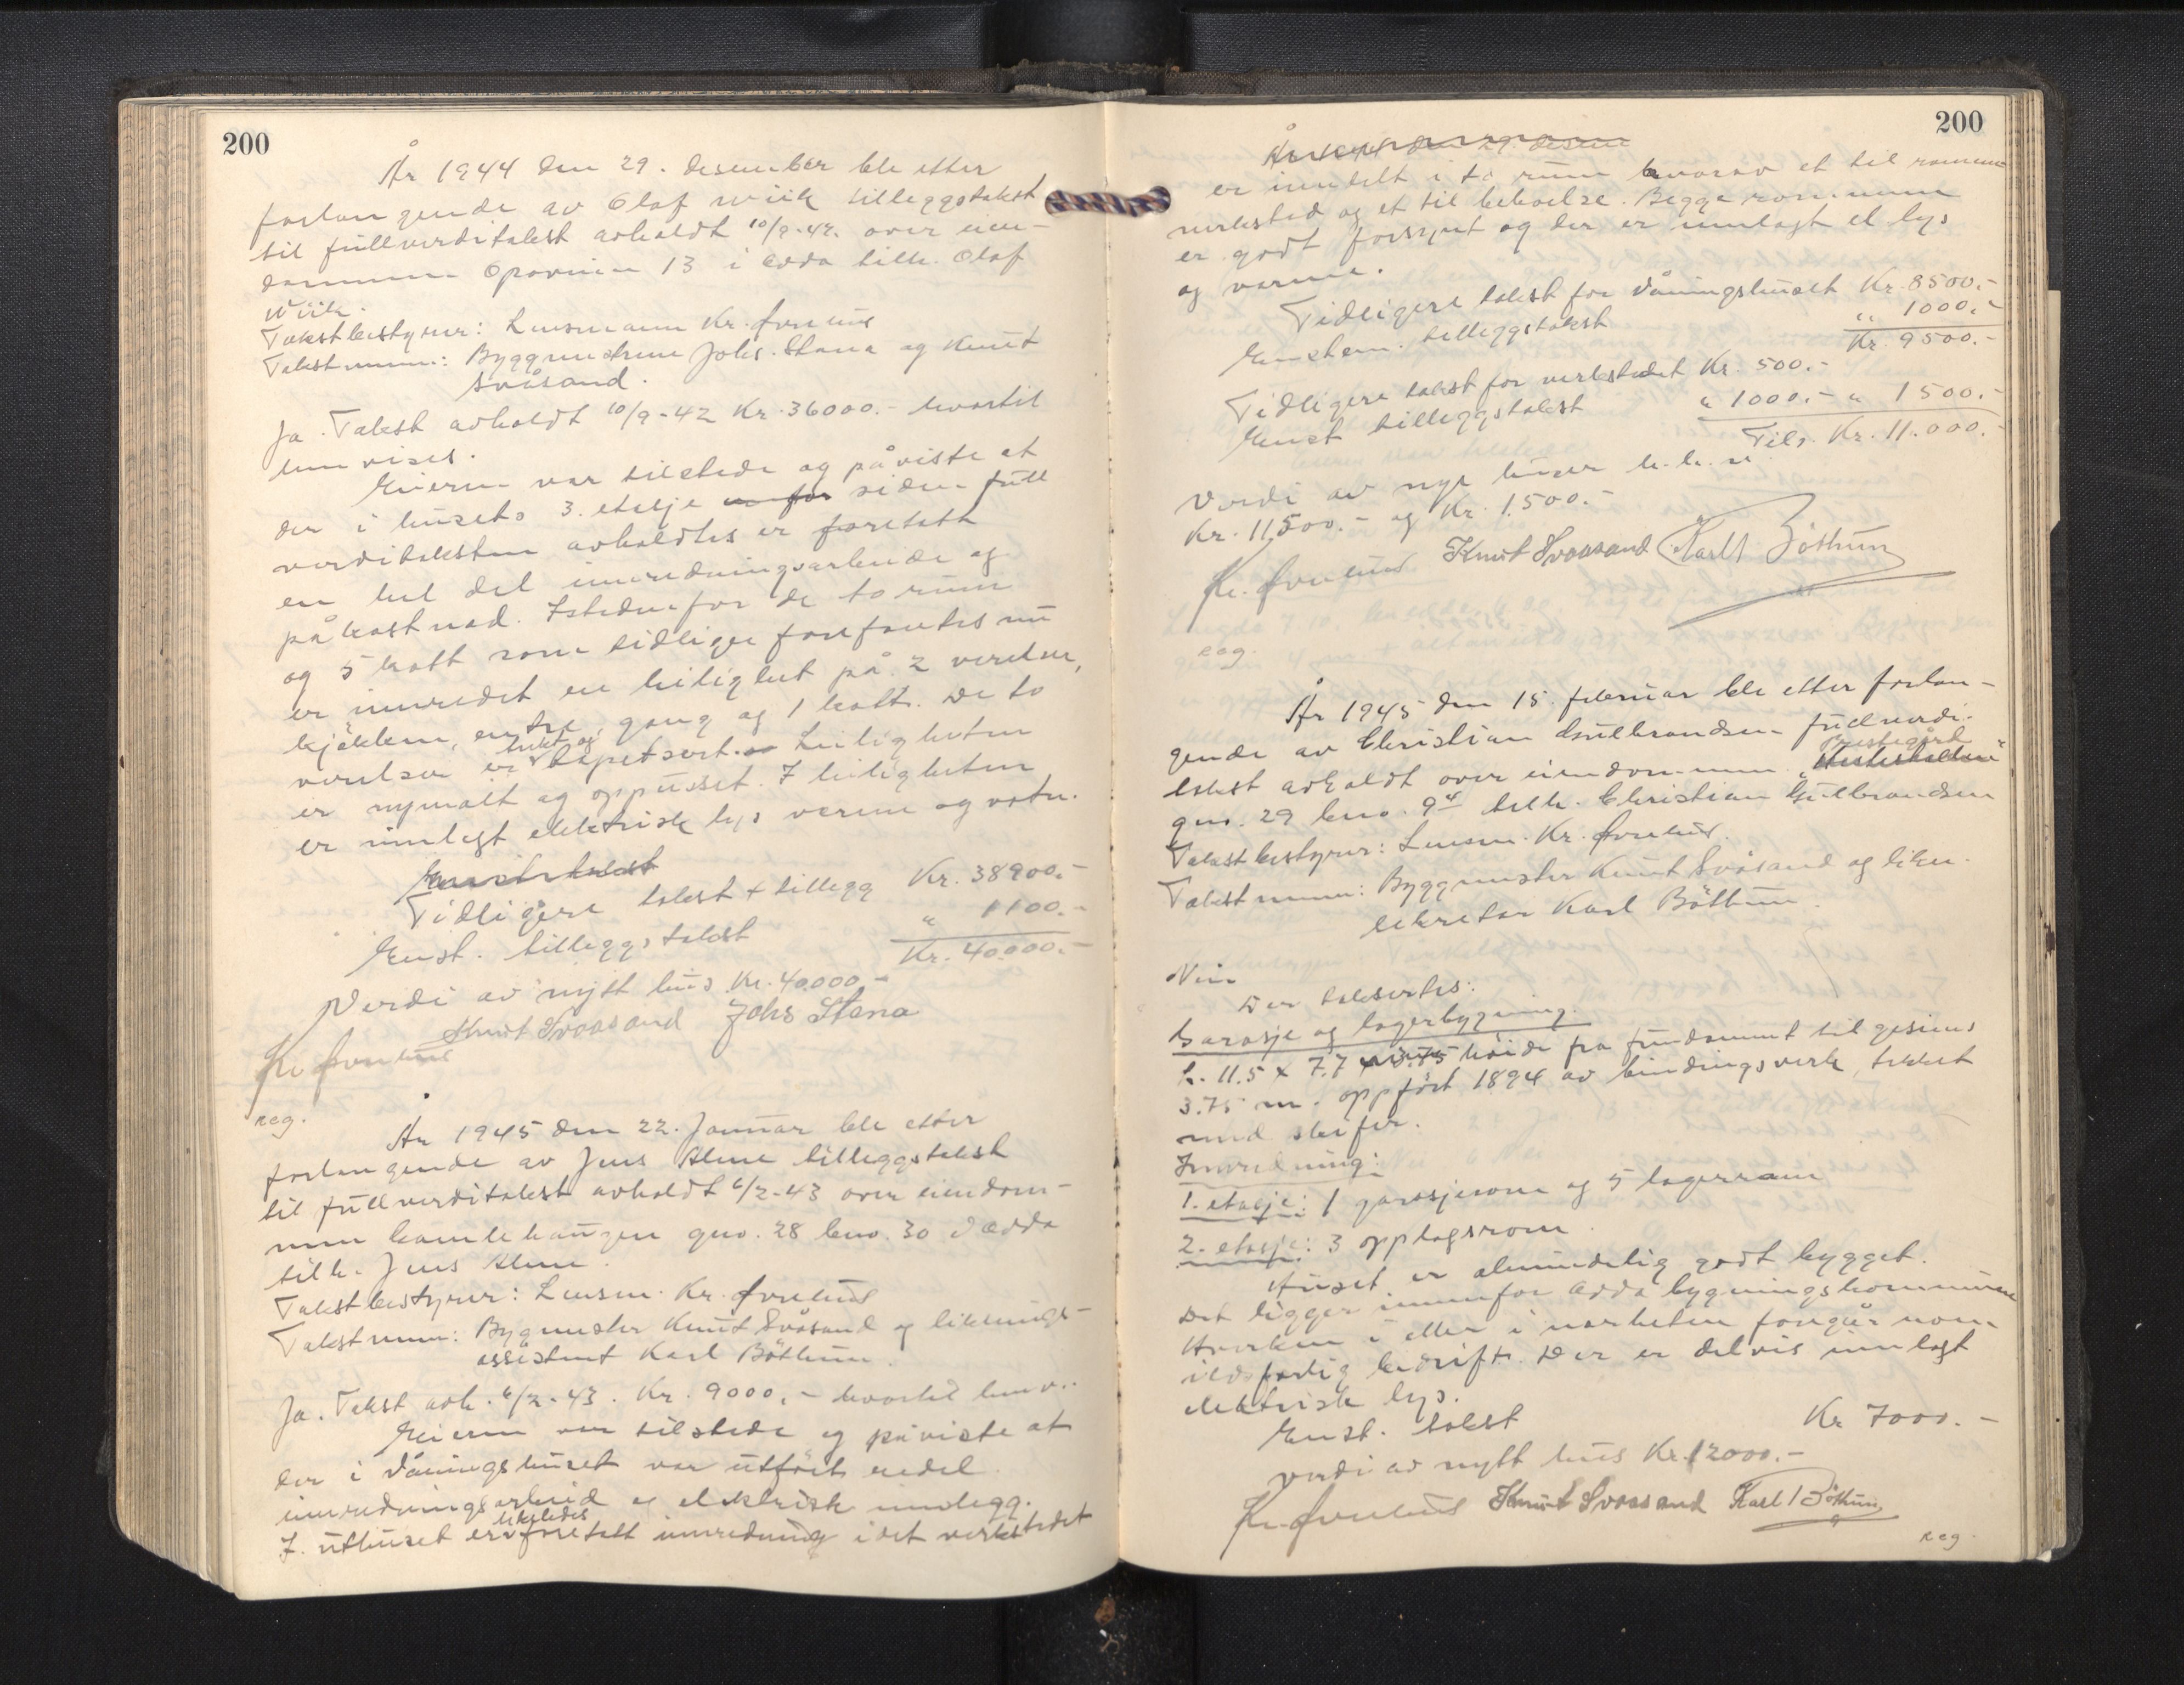 200
År 1944 den 29. desember ble etter
forlangende av Olaf Wiik tilleggstakst
til fullverditakst avholdt 10/9-42. over eien-
dommen Opoveien 13 i Odda tilh. Olaf
Wiik.
Takstbestyrer: Lensmann Kr.
Takstmenn: Byggmestrene Johs. Stana og Knut
Svåsand.
Ja. Takst avholdt 10/9-42 Kr. 36000.- hvortil
henvises.
Eieren var tilstede og påviste at
der i husets 3. etasje siden full
verditaksten avholdtes er foretatt
en hel del innredningsarbeide og
påkostnad. Istedenfor de to rum
og 5 kott som tidligere forefantes nu
er innredet en leilighet på 2 verelser,
kjøkken, entre, gang og 1 kott. De to
verelser er trukt og tapetsert. Leiligheten
er nymalt og oppusset. I leiligheten
er innlagt elektrisk lys verme og vatn.
Enst. takst
Tidligere takst + tillegg Kr. 38900.-
Enst. tilleggstakst " 1100.-
Kr. 40.000.-
Verdi av nytt hus Kr. 40.000.-
Knut Svaasand Johs Stana
Kr.
reg.
År 1945 den 22. Januar ble etter
forlangende av Jens Alme tilleggstakst
til fullverditakst avholdt 6/2-43 over eiendom-
men gno. 28 bno. 30 i Odda
tilh. Jens Alme.
Takstbestyrer: Lensm. Kr.
Takstmenn: Bygmester Knut Svåsand og liknings-
assistent Karl Bøthun.
Ja. Takst avh. 6/2-43. Kr. 9000.- hvortil henv..
Eieren var tilstede og påviste at
der i våningshuset var utført endel
innredningsarbeid og elektrisk innlegg.
I uthuset er likeledes foretatt innredning i det verkstedet
200
År 1944 den 29. desem
er inndelt i to rum hvorav et til
verksted og et til beboelse. Begge rommene
er godt forsynt og der er innlagt el lys
og varme.
Tidligere takst for våningshuset Kr. 8500.-
Enstem. tilleggstakst " 1000.-
Kr. 9500.-
Tidligere takst for verkstedet Kr. 500.-
Enst tilleggstakst " 1000.- " 1500.-
Tils. Kr. 11.000.-
Verdi av nye huser h.h.v.
Kr. 11,500.- og Kr. 1.500.-
Kr. Knut Svaasand Karl Bøthun
reg.
År 1945 den 15. februar ble etter forlan-
gende av Christian Gulbrandsen fullverdi-
Prestegård
takst avholdt over eiendommen
gno. 29 bno. 94 tilh. Christian Gulbrandsen
Takstbestyrer: Lensm. Kr.
Takstmenn: Byggmester Knut Svåsand og likn.
sekretær Karl Bøthun.
Nei
Der taksertes:
Garasje og lagerbygning.
L. 11.5 x 7.7 x 3.75 høide fra fundament til gesims
3.75 m. oppført 1894 av bindingsverk, tekket
med skifer.
Innredning:
1. etasje: 1 garasjerom og 5 lagerrom
2. etasje: 3 opplagsrom.
Huset er almindelig godt bygget.
Det ligger innenfor Odda bygningskommune
Hverken i eller i nærheten foregår noen
ildsfarlig bedrift. Der er delvis innlagt
elektrisk lys.
Enst. takst Kr 7000.-
verdi av nytt hus Kr. 12000.-
Kr. Knut Svaasand Karl Bøthun
reg.